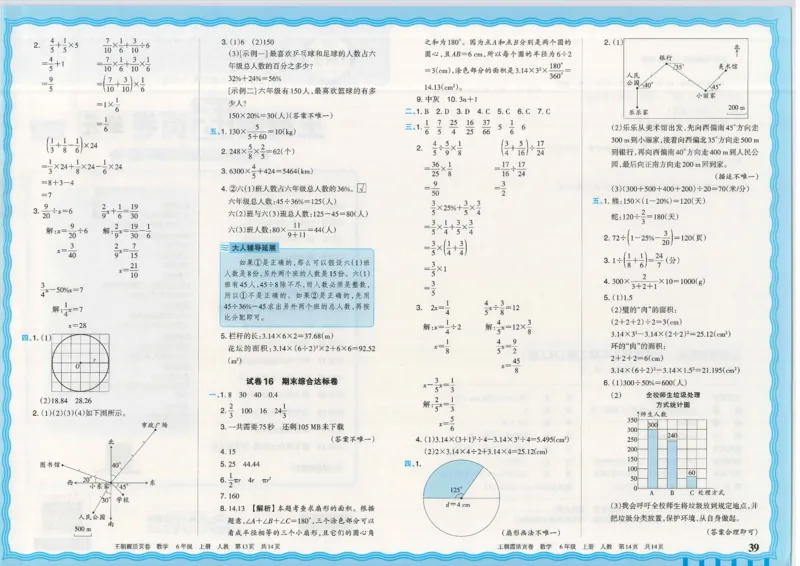 2. 4/5+1/5×5
=4/5+1
=9/5
7/10×1/6+3/10÷6
=7/10×1/6+3/10×1/6
=(7/10+3/10)×1/6
=1×1/6
=1/6
(1/3+1/8-1/6)×24
=1/3×24+1/8×24-1/6×24
=8+3-4
=7
3. 9/20÷x=6
解:x=9/20÷6
x=3/40
2/9x+1/6=19/30
解:2/9x=19/30-1/6
2/9x=7/15
x=21/10
3/4x-50%x=7
解:1/4x=7
x=28
四、1. (1)
O
r
(2)18.84 28.26
2. (1)(2)(3)(4)如下图所示。
市政广场
北
图书馆
40°
20°
西
小东家
45°
东
30°
学校
人民公园
南
500 m
3. (1)6 (2)150
(3)[示例一]最喜欢乒乓球和足球的人数占六
年级总人数的百分之多少?
32%+24%=56%
[示例二]六年级有150人,最喜欢篮球的有多
少人?
150×20%=30(人)(答案不唯一)
五、1. 130×5/(5+60)=10(kg)
2. 248×5/8×2/5=62(个)
3. 6300×4/5+424=5464(km)
4. ②六(1)班人数占六年级总人数的36%。 √
六年级总人数:45÷36%=125(人)
六(2)班与六(3)班总人数:125-45=80(人)
六(3)班人数:80×11/(9+11)=44(人)
大人辅导延展
如果①是正确的,那么可以假设六(1)班
人数是8份,另外两个班的人数是15份。六(1)
班有45人,45÷8除不尽,而人数必须是整数,
所以①不是正确的。如果②是正确的,先用
45÷36%-45求出另外两个班的总人数,再按
比分配即可。
5. 栏杆的长:3.14×6×2=37.68(m)
花坛的面积:3.14×(6÷2)²×2+6×6=92.52
(m²)
试卷16 期末综合达标卷
一、1. 8 30 40 0.4
2. 2/3 100 16 24 1/3
3. 一共需要75秒 还剩105 MB未下载
(答案不唯一)
4. 15
5. 25 44.44
6. 1/2πr 4r πr²
7. 160
8. 14.13 【解析】本题考查求扇形的面积。根据
题意,∠A+∠B+∠C=180°,三个涂色部分可以
看成半径相等的三个小扇形,且它们的圆心角
之和为180°。因为点A和点B分别是两个圆的
圆心,且AB=6 cm,所以每个圆的半径为6÷2
=3(cm),涂色部分的面积是3.14×3²×180°/360°=
14.13(cm²)。
9. 中灰 10. 3n+1
二、1. B 2. D 3. D 4. C 5. C 6. C 7. C
三、1. 1/6 7/5 25/4 16/25 37/66 5 1/6 6
2. 4/5÷5/9×1/8
=36/25×1/8
=9/50
(3/4+5/16)÷17/24
=17/16÷17/24
=3/2
3/5×25%+3/5×3/4
=3/5×1/4+3/5×3/4
=3/5×(1/4+3/4)
=3/5×1
=3/5
3. 2x=1/4
解:x=1/4÷2
x=1/8
4/5x÷3/8=12
解:4/5x=12×3/8
4/5x=9/2
x=45/8
x-3/5x=1/3
解:2/5x=1/3
x=5/6
4. (1)3.14×(3+1)²÷4-3.14×3²÷4=5.495(cm²)
(2)2×3.14×4÷2+3.14×4=25.12(cm)
四、1.
125°
d=4 cm
(扇形画法不唯一)
2. (1)
北
银行
美术馆
35°
人民公园
40°
45°
小丽家
乐乐家
200 m
(2)乐乐从美术馆出发,先向西偏南45°方向走
300 m到小丽家,接着向西偏北35°方向走500 m
到银行,再向西偏南40°方向走400 m到人民公
园,最后向正南方向走200 m回到家。
(描述不唯一)
(3)(300+500+400+200)÷20=70(米/分)
五、1. 熊:150×(1-20%)=120(天)
蛇:120÷2/3=180(天)
2. 72÷(1-25%-3/20)=120(页)
3. 1÷(1/8+1/6)=24/7(分)
4. 300×2/(3+2+1)×10=1000(g)
5. (1)1.5
(2)璧的“肉”的面积:
(2+2+2)÷2=3(cm)
3.14×3²-3.14×(2÷2)²=25.12(cm²)
环的“肉”的面积:
2+2+2=6(cm)
3.14×(6÷2)²-3.14×1.5²=21.195(cm²)
6. (1)300÷50%=600(人)
(2)
全校师生垃圾处理
方式统计图
师生人数
350
300
250
200
150
100
50
0
300
240
60
A B C 处理方式
(3)我会呼吁全校师生将垃圾放到规定地点,并
把垃圾分类放置,保护环境,从自身做起。
(答案合理即可)
王朝霞活页卷 数学 6年级 上册 人教 第13页 共14页
王朝霞活页卷 数学 6年级 上册 人教 第14页 共14页
39